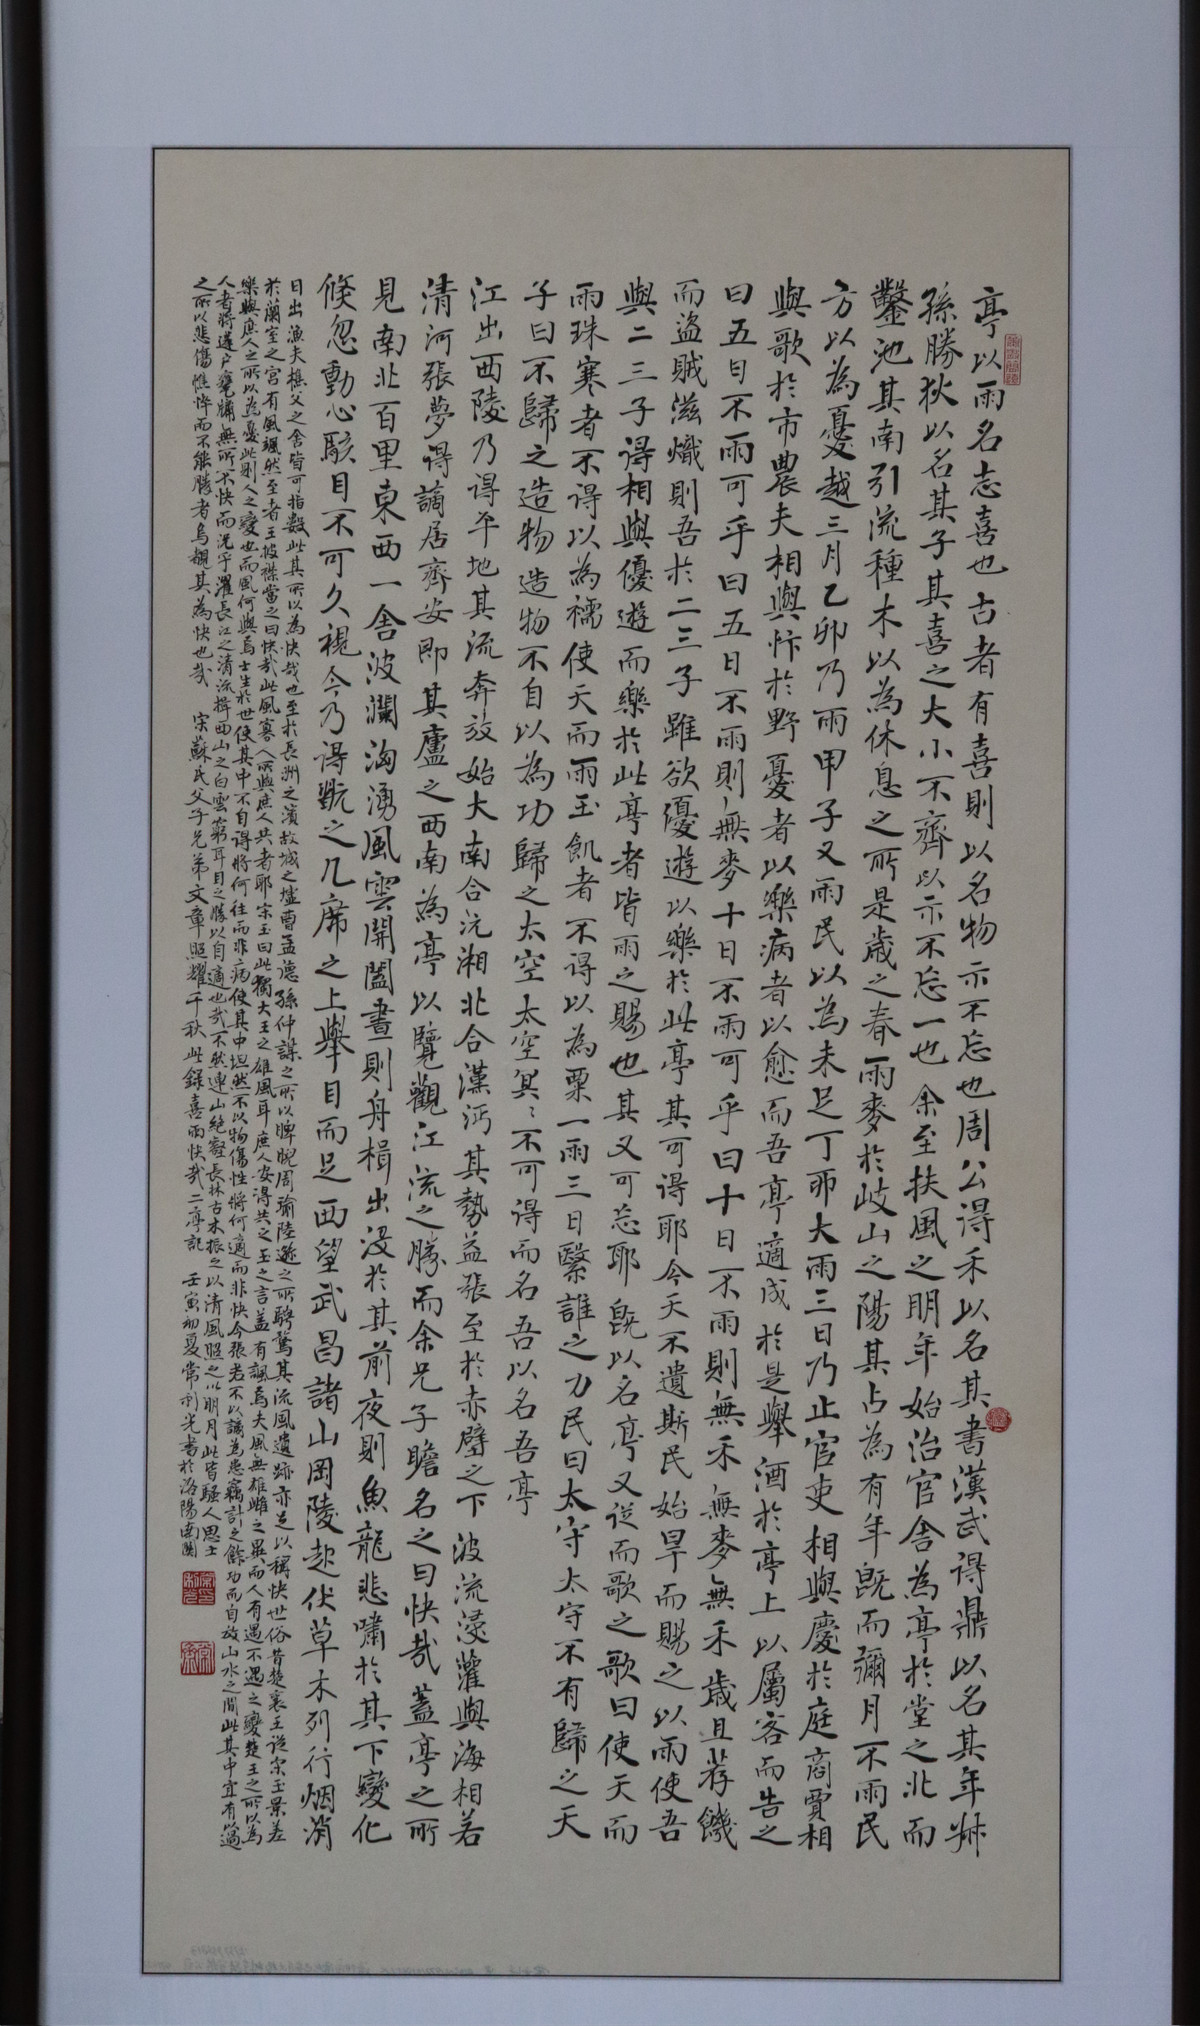 亭以雨名志喜也古者有喜則以名物示不忘也周公得禾以名其書漢武得鼎以名其年叔
孫勝狄以名其子其喜之大小不齊以示不忘一也余至扶風之明年始治官舍為亭於堂之北而
鑿池其南引流種木以為休息之所是歲之春雨麥於岐山之陽其占為有年既而彌月不雨民
方以為憂越三月乙卯乃雨甲子又雨民以為未足丁卯大雨三日乃止官吏相與慶於庭商賈相
與歌於市農夫相與忭於野憂者以樂病者以愈而吾亭適成於是舉酒於亭上以屬客而告之
曰五日不雨可乎曰五日不雨則無麥十日不雨可乎曰十日不雨則無禾無麥無禾歲且荐饑
而盜賊滋熾則吾於二三子雖欲優遊以樂於此亭其可得耶今天不遺斯民始旱而賜之以雨使吾
與二三子得相與優遊而樂於此亭者皆雨之賜也其又可忘耶既以名亭又從而歌之歌曰使天而
雨珠寒者不得以為襦使天而雨玉飢者不得以為粟一雨三日繄誰之力民曰太守太守不有歸之天
子曰不歸之造物造物不自以為功歸之太空太空冥〻不可得而名吾以名吾亭
江出西陵乃得平地其流奔放始大南合沅湘北合漢沔其勢益張至於赤壁之下波流浸灌與海相若
清河張夢得謫居齊安即其廬之西南為亭以覽觀江流之勝而余兄子瞻名之曰快哉蓋亭之所
見南北百里東西一舍波瀾洶湧風雲開闔晝則舟楫出沒於其前夜則魚龍悲嘯於其下變化
倏忽動心駭目不可久視今乃得翫之几席之上舉目而足西望武昌諸山岡陵起伏草木列行烟消
日出漁夫樵父之舍皆可指數此其所以為快哉也至於長洲之濱故城之墟曹孟德孫仲謀之所以睥睨周瑜陸遜之所騁騖其流風遺跡亦足以稱快世俗昔楚襄王從宋玉景差
於蘭臺之宮有風颯然至者王披襟當之曰快哉此風寡人所與庶人共者耶宋玉曰此獨大王之雄風耳庶人安得共之玉之言蓋有諷焉夫風無雄雌之異而人有遇不遇之變楚王之所以為
樂與庶人之所以為憂此則人之變也而風何與焉士生於世使其中不自得將何往而非病使其中坦然不以物傷性將何適而非快今張君不以謫為患竊計之餘功而自放山水之間此其中宜有以過
人者將蓬戶甕牖無所不快而況乎濯長江之清流揖西山之白雲窮耳目之勝以自適也哉不然連山絕壑長林古木振之以清風照之以明月此皆騷人思士
之所以悲傷憔悴而不能勝者烏覩其為快也哉 宋蘇氏父子兄弟文章照耀千秋此錄喜雨快哉二亭記 壬寅初夏常利光書於洛陽南關